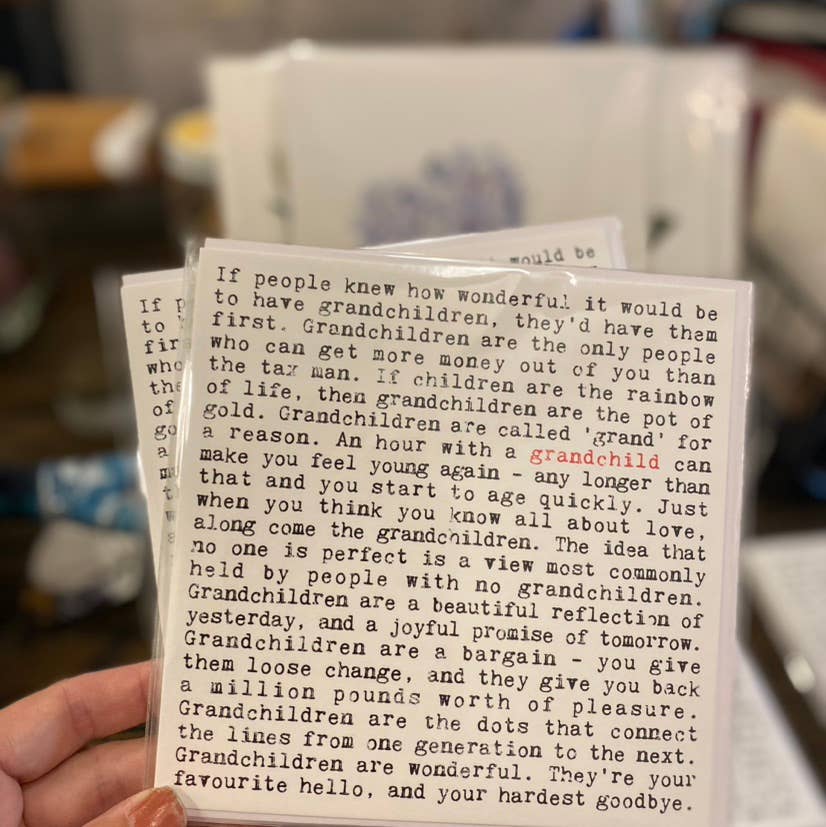 would be
If people knew how wonderful it would be
to have grandchildren, they'd have them
first. Grandchildren are the only people
who can get more money out of you than
the tax man. If children are the rainbow
of life, then grandchildren are the pot of
gold. Grandchildren are called 'grand' for
a reason. An hour with a grandchild can
make you feel young again - any longer than
that and you start to age quickly. Just
when you think you know all about love,
along come the grandchildren. The idea that
no one is perfect is a view most commonly
held by people with no grandchildren.
Grandchildren are a beautiful reflection of
yesterday, and a joyful promise of tomorrow.
Grandchildren are a bargain - you give
them loose change, and they give you back
a million pounds worth of pleasure.
Grandchildren are the dots that connect
the lines from one generation to the next.
Grandchildren are wonderful. They're your
favourite hello, and your hardest goodbye.
If p
to
fir
who
the
of
go
a